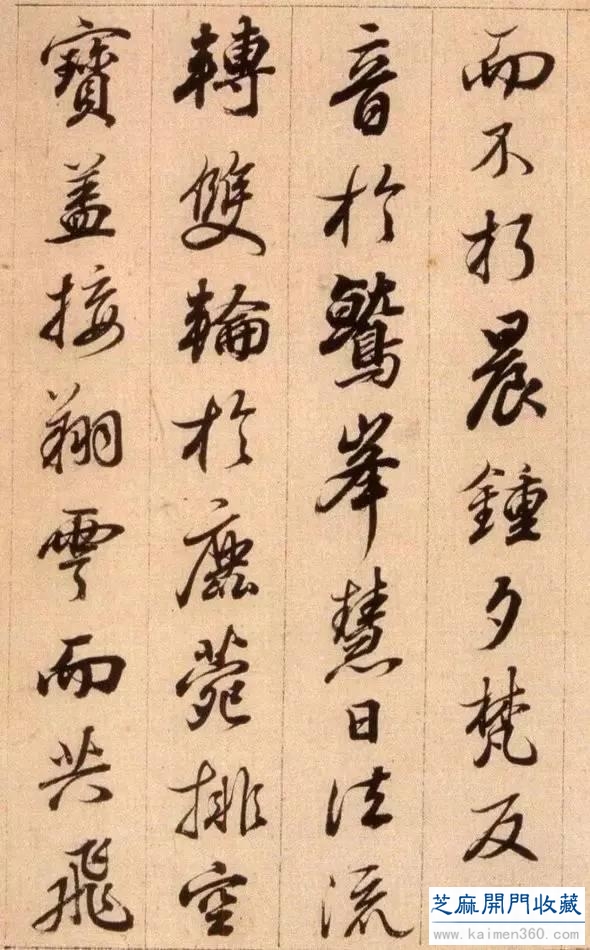 而不朽晨鍾夕梵交
音於鷲峯慧日法流
轉雙輪於鹿菀排空
寶盖接翔雲而共飛
芝麻開門收藏
www.kaimen360.com